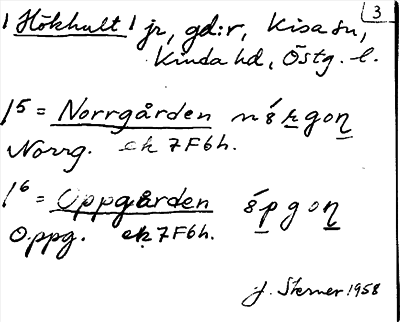 3
/ Hökhult / jr, gd:r, Kisa sn,
Kinda hd, Östg. l.
/5 = Norrgården
Norrg. ek 7F6h.
/6 = Oppgården
Oppg. ek 7F6h.
J. Sterner 1958